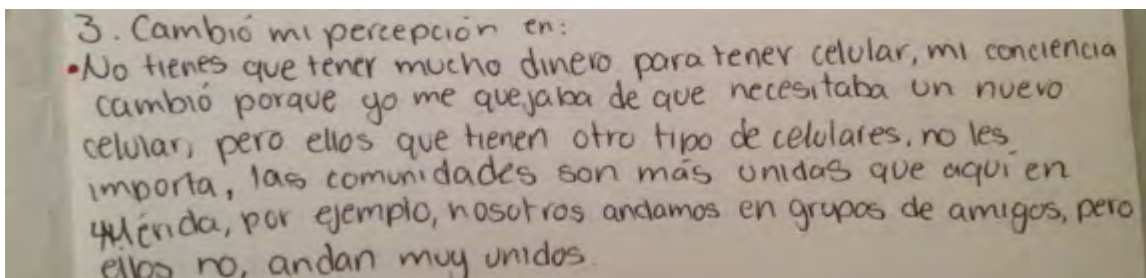 3. Cambió mi percepción en:
•No tienes que tener mucho dinero para tener celular, mi conciencia
cambió porque yo me quejaba de que necesitaba un nuevo
celular, pero ellos que tienen otro tipo de celulares, no les
importa, las comunidades son más unidas que aquí en
Mérida, por ejemplo, nosotros andamos en grupos de amigos, pero
ellos no, andan muy unidos.